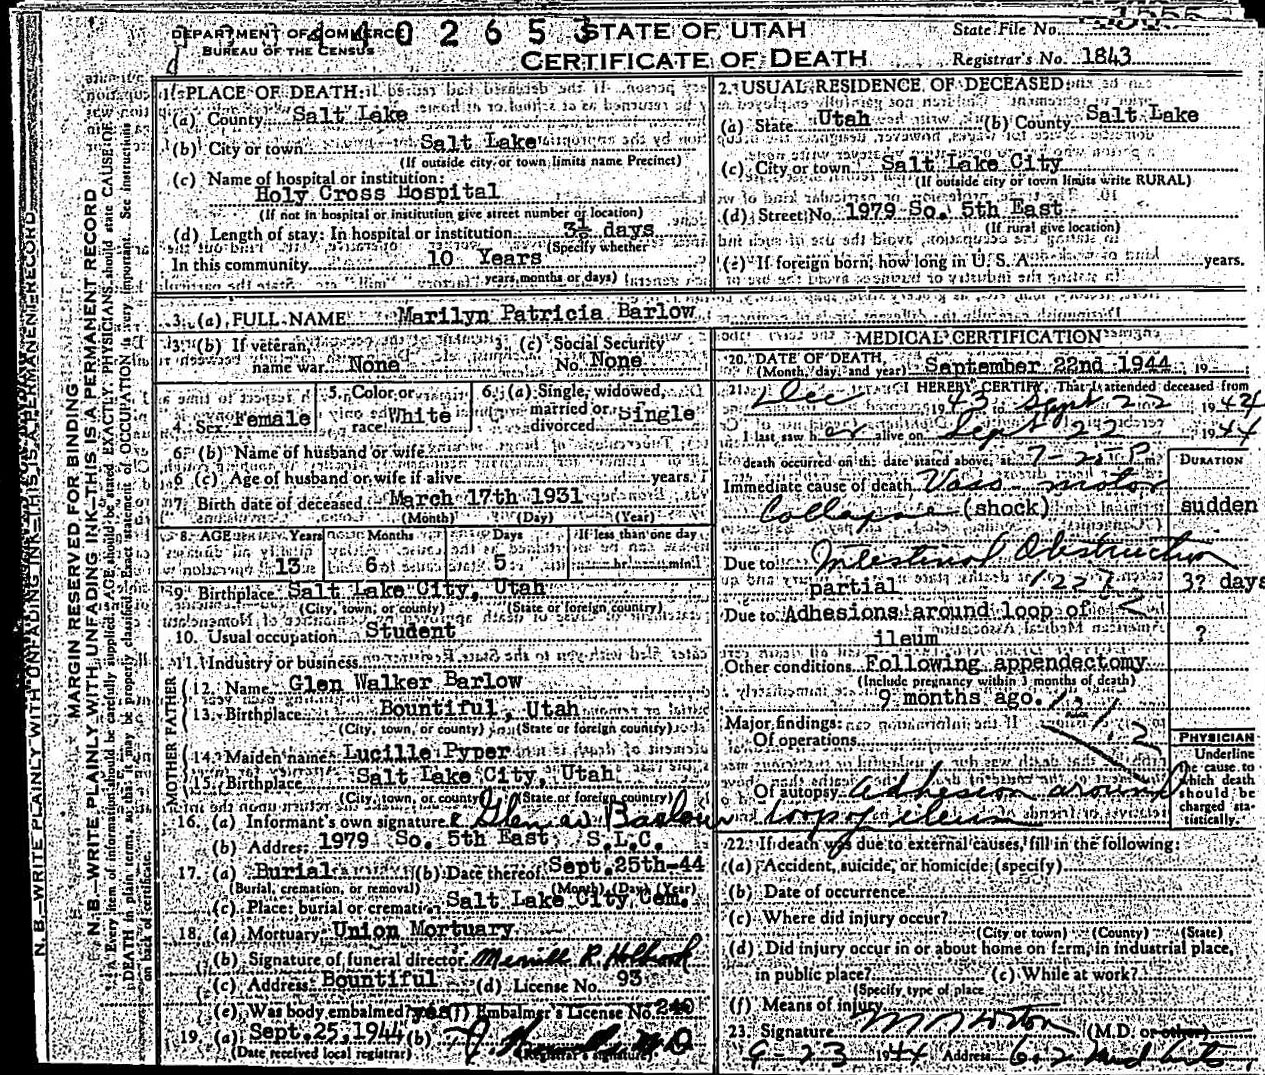 DEPARTMENT OF COMMERCE
BUREAU OF THE CENSUS
0 2 6 5 3
STATE OF UTAH
CERTIFICATE OF DEATH
State File No.
Registrar's No. 1843
MARGIN RESERVED FOR BINDING
N. B.—WRITE PLAINLY WITH UNFADING INK—THIS IS A PERMANENT RECORD
1. PLACE OF DEATH:
(a) County Salt Lake
(b) City or town Salt Lake
(If outside city or town limits name Precinct)
(c) Name of hospital or institution:
Holy Cross Hospital
(If not in hospital or institution give street number or location)
(d) Length of stay: In hospital or institution 3½ days
(Specify whether
In this community 10 Years
years, months or days)
2. USUAL RESIDENCE OF DECEASED
(a) State Utah (b) County Salt Lake
(c) City or town Salt Lake City
(If outside city or town limits write RURAL)
(d) Street No. 1979 So. 5th East
(If rural give location)
(e) If foreign born, how long in U. S. A. years.
3. (a) FULL NAME Marilyn Patricia Barlow
3. (b) If veteran, name war None
3. (c) Social Security No. None
4. Sex Female
5. Color or race White
6. (a) Single, widowed, married or divorced Single
6. (b) Name of husband or wife
6 (c) Age of husband or wife if alive years.
7. Birth date of deceased March 17th 1931
(Month) (Day) (Year)
8. AGE Years 13 Months 6 Days 5 If less than one day hr. min.
9. Birthplace Salt Lake City, Utah
(City, town, or county) (State or foreign country)
10. Usual occupation Student
11. Industry or business
FATHER
12. Name Glen Walker Barlow
13. Birthplace Bountiful, Utah
(City, town, or county) (State or foreign country)
MOTHER
14. Maiden name Lucille Pyper
15. Birthplace Salt Lake City, Utah
(City, town, or county) (State or foreign country)
16. (a) Informant's own signature Barlow
(b) Address 1979 So. 5th East, S.L.C.
17. (a) Burial (b) Date thereof Sept. 25th-44
(Burial, cremation, or removal) (Month) (Day) (Year)
(c) Place: burial or cremation Salt Lake City Cem.
18. (a) Mortuary Union Mortuary
(b) Signature of funeral director Merrill R. Holbrook
(c) Address Bountiful (d) License No. 93
(e) Was body embalmed? yes (f) Embalmer's License No. 240
19. (a) Sept. 25, 1944 (b) M D
(Date received local registrar) (Registrar's signature)
MEDICAL CERTIFICATION
20. DATE OF DEATH
(Month, day, and year) September 22nd 1944, 19
21. I HEREBY CERTIFY, That I attended deceased from
Dec 1943 to Sept 22 1944
I last saw her alive on Sept 22 1944
death occurred on the date stated above, at P. m.
DURATION
Immediate cause of death Vaso motor
Collapse (shock) sudden
Due to Intestinal Obstruction
partial 3? days
Due to Adhesions around loop of
ileum ?
Other conditions Following appendectomy
(Include pregnancy within 3 months of death)
9 months ago.
Major findings:
Of operations
Of autopsy Adhesion around
loop of ileum
PHYSICIAN
Underline the cause to which death should be charged statistically.
22. If death was due to external causes, fill in the following:
(a) Accident, suicide, or homicide (specify)
(b) Date of occurrence
(c) Where did injury occur?
(City or town) (County) (State)
(d) Did injury occur in or about home on farm, in industrial place,
in public place? (e) While at work?
(Specify type of place
(f) Means of injury
23. Signature (M.D. or other)
9-23 1944 Address